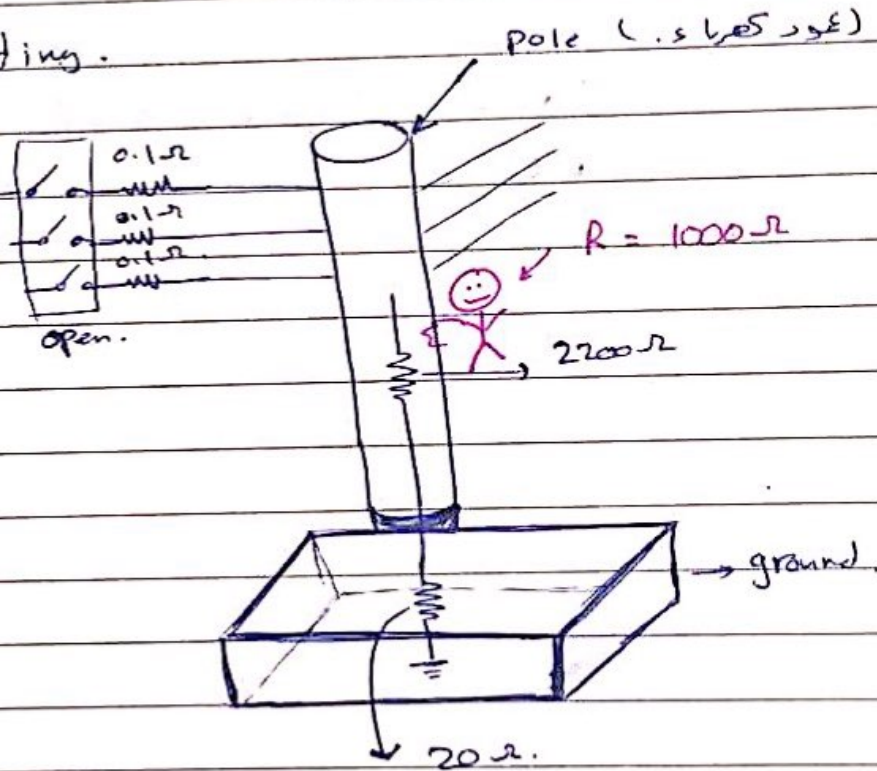 ting.
pole (عمود كهرباء.)
0.1Ω
0.1Ω
0.1Ω.
open.
R = 1000Ω
2200Ω
ground.
20Ω.